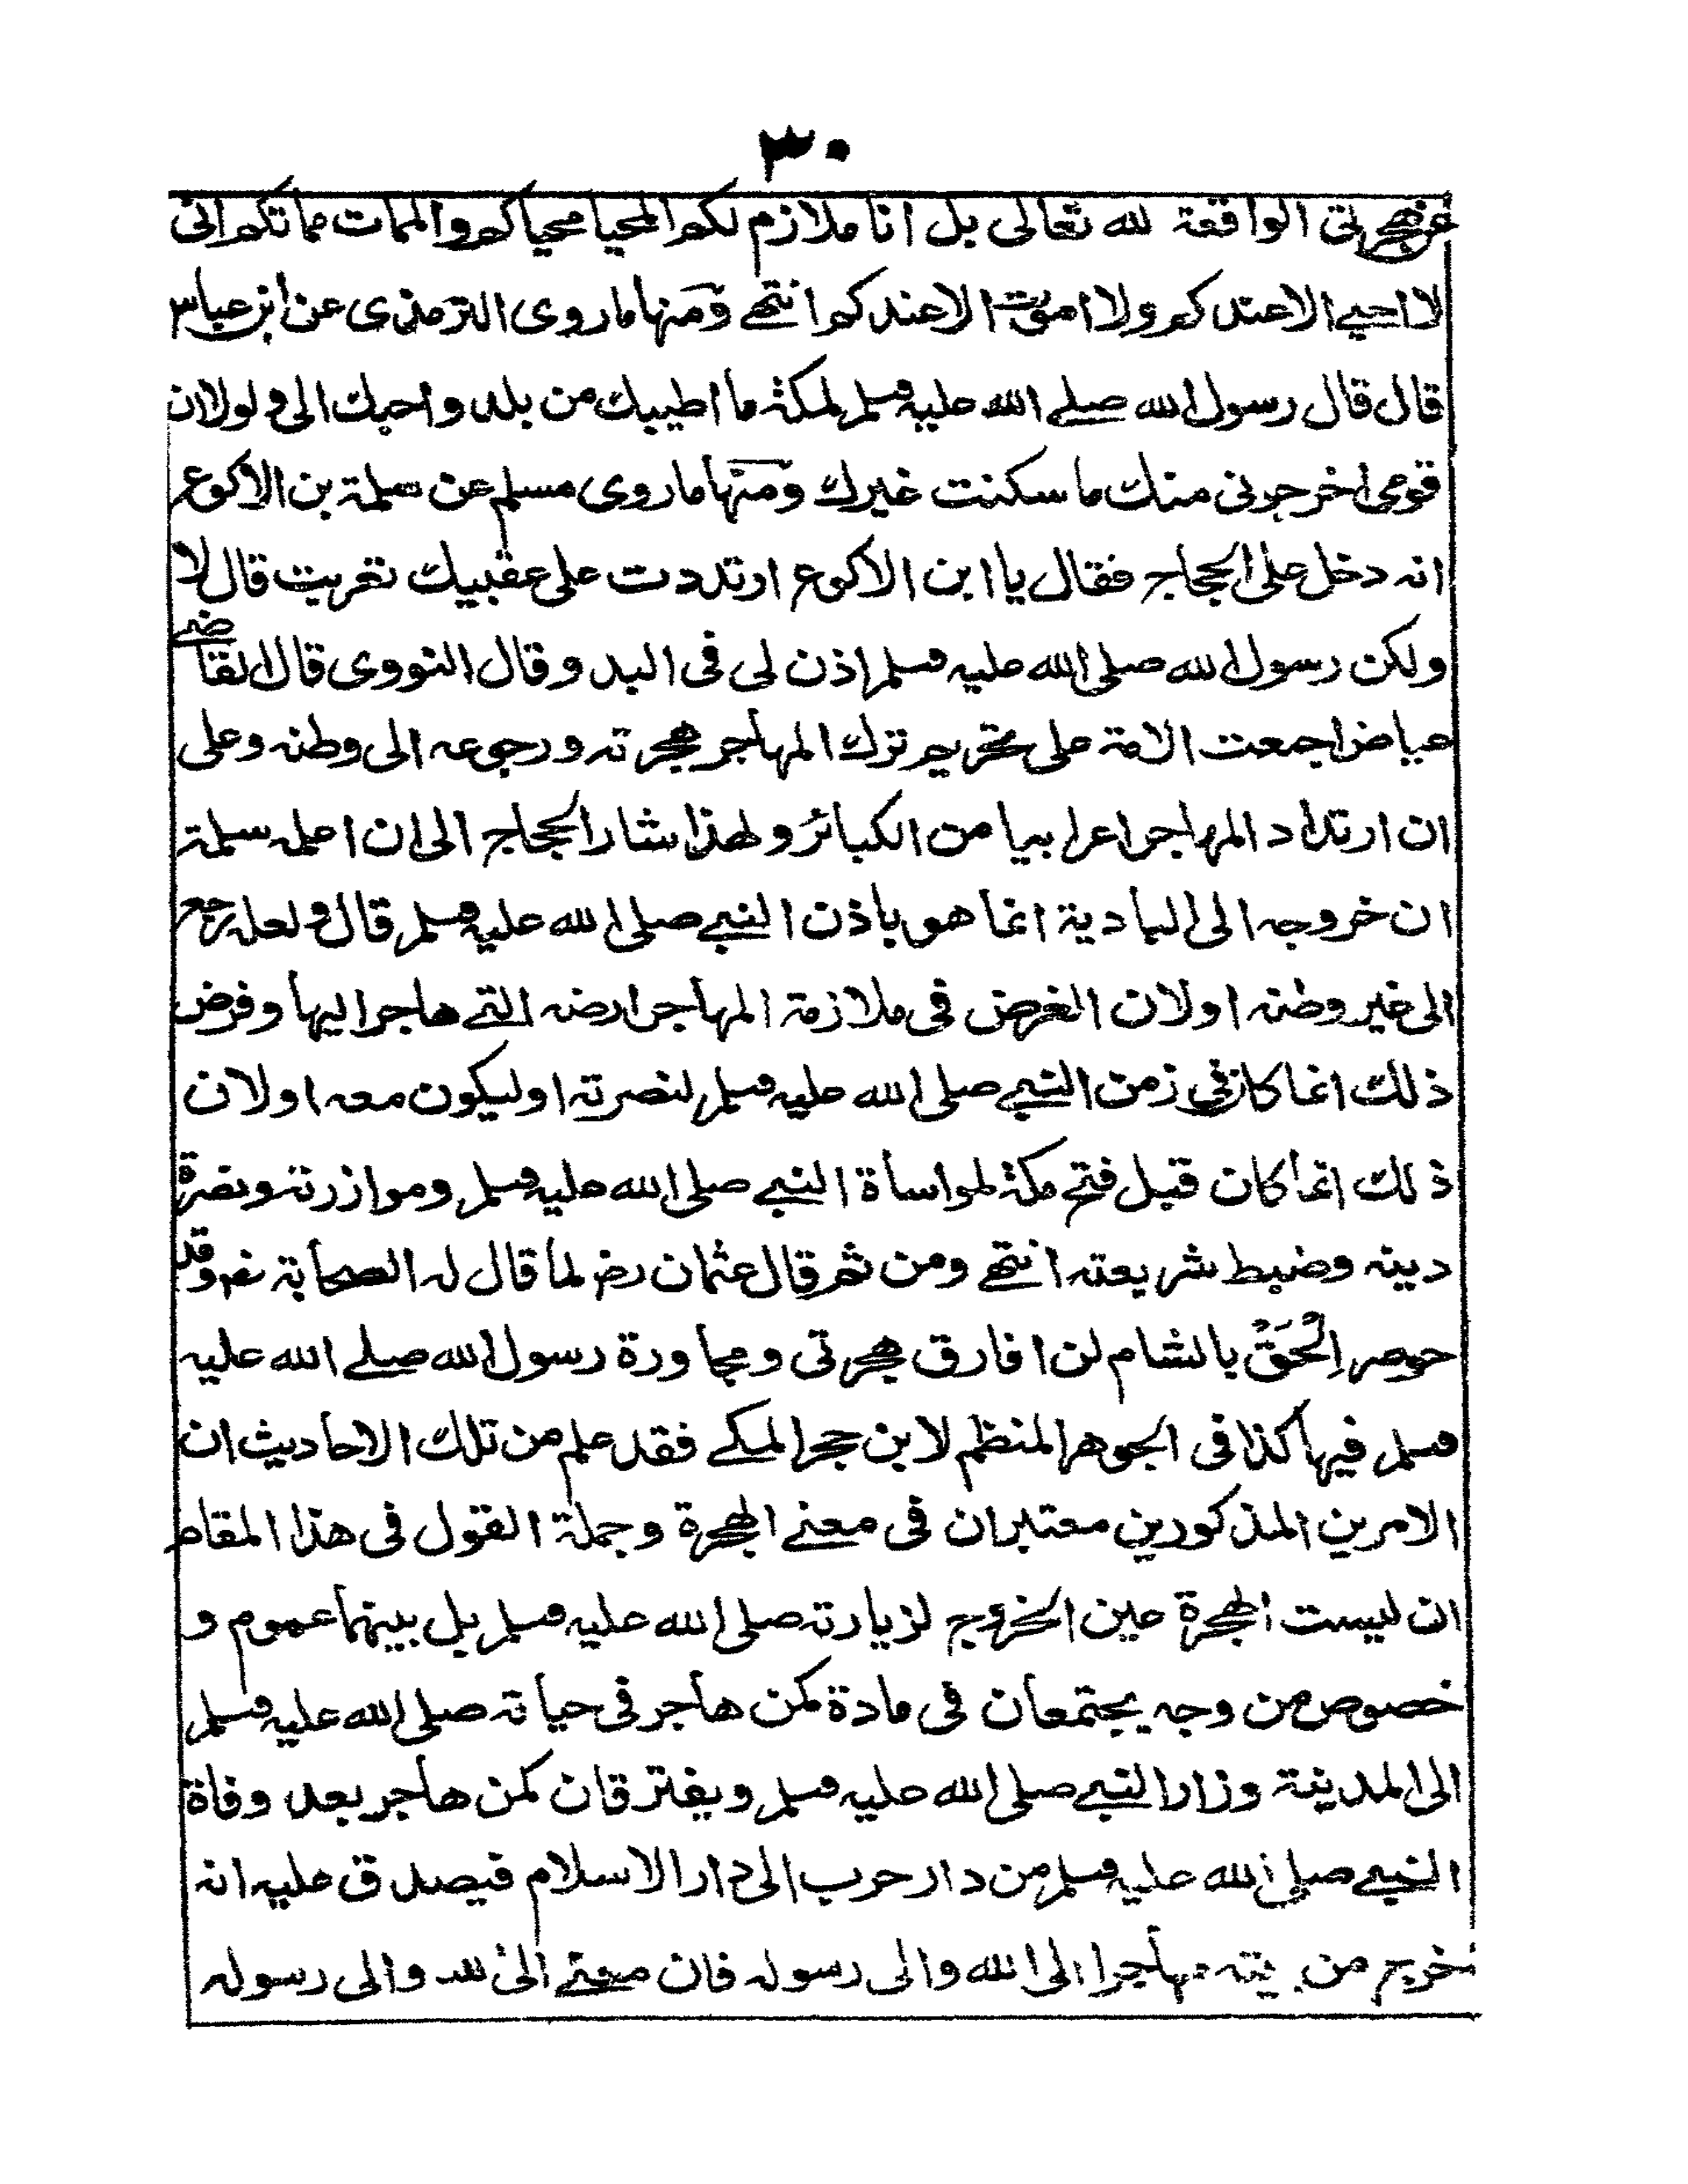 ٣٠
عن هجرتى الواقعة لله تعالى بل انا ملازم لكم المحيا محياكم والممات مماتكم اى
لا احيى الا عندكم ولا اموت الا عندكم انتهى ومنها ما روى الترمذى عن ابن عباس
قال قال رسول الله صلى الله عليه وسلم لمكة ما اطيبك من بلد واحبك الى ولولا ان
قومى اخرجونى منك ما سكنت غيرك ومنها ما روى مسلم عن سلمة بن الاكوع
انه دخل على الحجاج فقال يا ابن الاكوع ارتددت على عقبيك تعربت قال لا
ولكن رسول الله صلى الله عليه وسلم اذن لى فى البد وقال النووى قال القاضى
عياض اجمعت الامة على تحريم ترك المهاجر هجرته ورجوعه الى وطنه وعلى
ان ارتداد المهاجر اعرابيا من الكبائر ولهذا اشار الحجاج الى ان اعلمه سلمة
ان خروجه الى البادية انما هو باذن النبى صلى الله عليه وسلم قال ولعله رجع
الى غير وطنه او لان الغرض فى ملازمة المهاجر ارضه التى هاجر اليها وفرض
ذلك انما كان فى زمن النبى صلى الله عليه وسلم لنصرته او ليكون معه او لان
ذلك انما كان قبل فتح مكة لمواساة النبى صلى الله عليه وسلم وموازرته ونصرة
دينه وضبط شريعته انتهى ومن ثم قال عثمان رض لما قال له الصحابة رض وقد
حوصر اِلْحَقْ بالشام لن افارق هجرتى ومجاورة رسول الله صلى الله عليه
وسلم فيها كذا فى الجوهر المنظم لابن حجر المكى فقد علم من تلك الاحاديث ان
الامرين المذكورين معتبران فى معنى الهجرة وجملة القول فى هذا المقام
ان ليست الهجرة عين الخروج لزيارته صلى الله عليه وسلم بل بينهما عموم و
خصوص من وجه يجتمعان فى مادة كمن هاجر فى حياته صلى الله عليه وسلم
الى المدينة وزار النبى صلى الله عليه وسلم ويفترقان كمن هاجر بعد وفاة
النبى صلى الله عليه وسلم من دار حرب الى دار الاسلام فيصدق عليه انه
خرج من بيته مهاجرا الى الله والى رسوله فان معنى الى الله والى رسوله